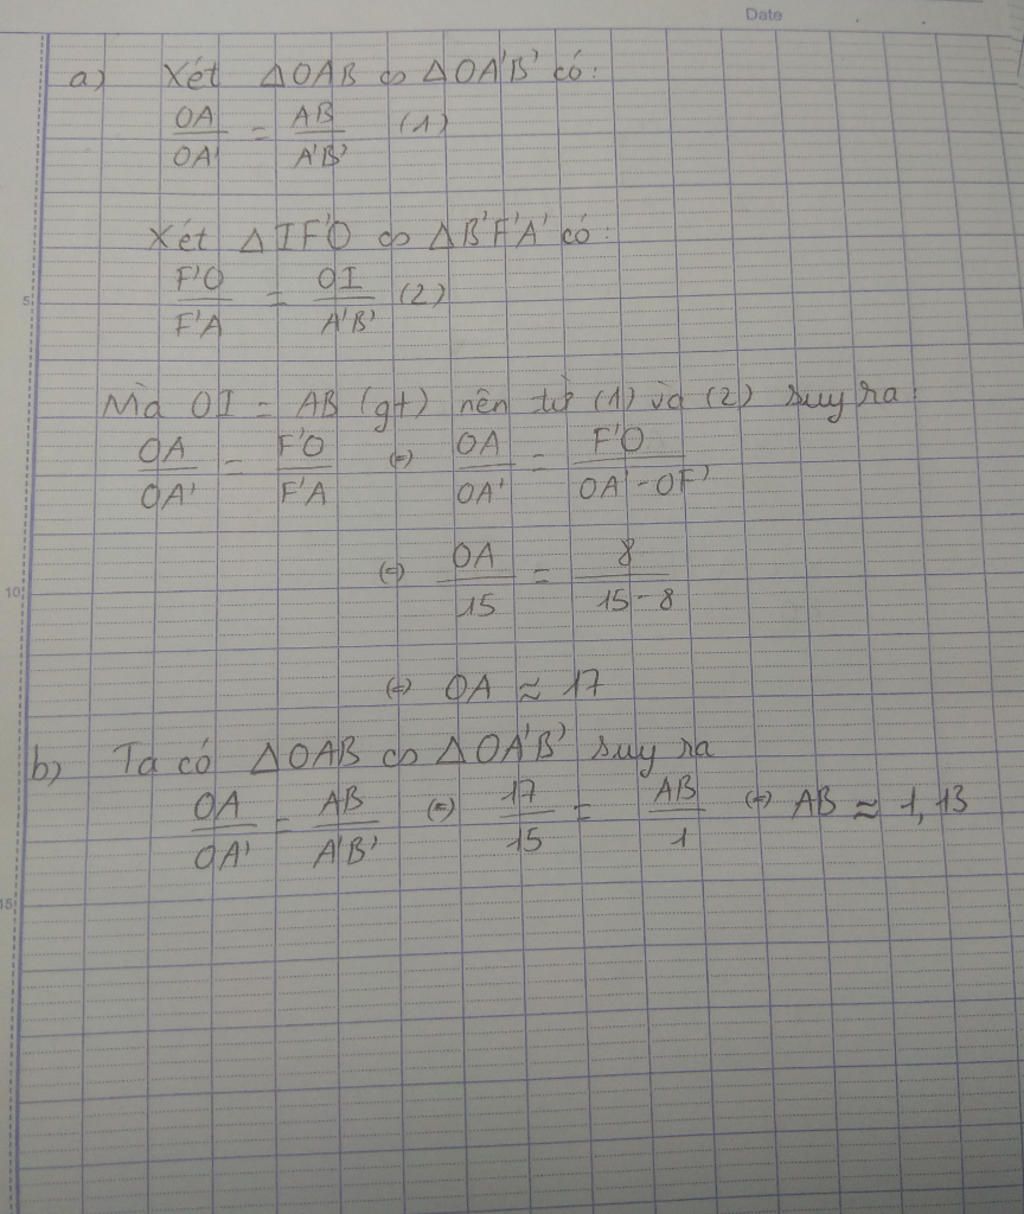 Date
a) Xét ΔOAB ∽ ΔOA'B' có:
OA/OA' = AB/A'B' (1)
Xét ΔIF'O ∽ ΔB'F'A' có:
5
F'O/F'A = OI/A'B' (2)
Mà OI = AB (gt) nên từ (1) và (2) suy ra:
OA/OA' = F'O/F'A (=) OA/OA' = F'O/OA'-OF'
10
(=) OA/15 = 8/15-8
(=) OA ≈ 17
b) Ta có ΔOAB ∽ ΔOA'B' suy ra
OA/OA' = AB/A'B' (=) 17/15 = AB/1 (=) AB ≈ 1,13
15